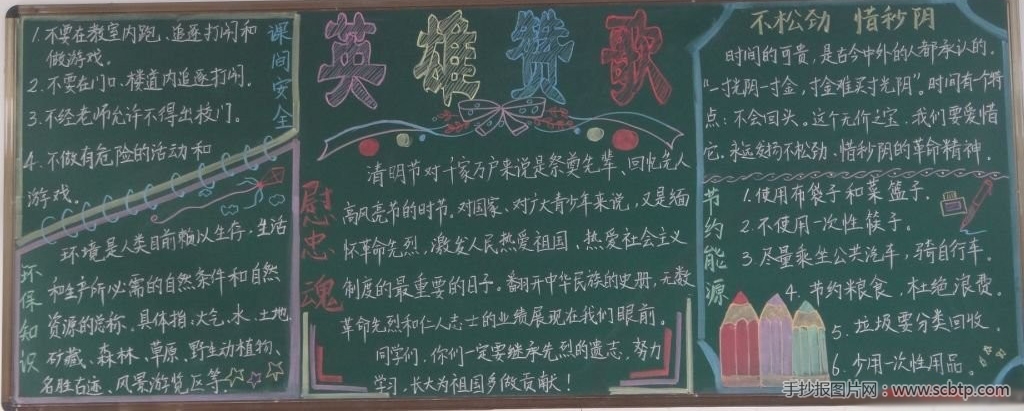 1.不要在教室内跑、追逐打闹和
做游戏。
2.不要在门口、楼道内追逐打闹。
3.不经老师允许不得出校门。
4.不做有危险的活动和
游戏。
课间安全
环境是人类目前赖以生存、生活
和生产所必需的自然条件和自然
资源的总称。具体指:大气、水、土地、
矿藏、森林、草原、野生动植物、
名胜古迹、风景游览区等。
环保知识
英雄赞歌
慰忠魂
清明节对千家万户来说是祭奠先辈、回忆先人
高风亮节的时节。对国家、对广大青少年来说,又是缅
怀革命先烈,激发人民热爱祖国,热爱社会主义
制度的最重要的日子。翻开中华民族的史册,无数
革命先烈和仁人志士的业绩展现在我们眼前。
同学们,你们一定要继承先烈的遗志,努力
学习,长大为祖国多做贡献!
不松劲 惜秒阴
时间的可贵,是古今中外的人都承认的。
“一寸光阴一寸金,寸金难买寸光阴”。时间有个特
点:不会回头。这个无价之宝,我们要爱惜
它。永远发扬不松劲、惜秒阴的革命精神。
节约能源
1.使用布袋子和菜篮子。
2.不使用一次性筷子。
3.尽量乘坐公共汽车,骑自行车。
4.节约粮食,杜绝浪费。
5.垃圾要分类回收。
6.少用一次性用品。
手抄报图片网:www.scbtp.com